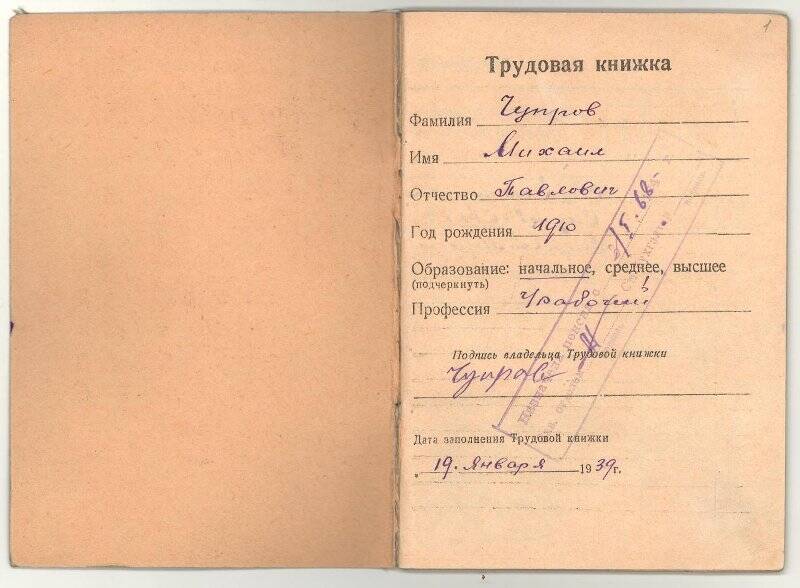 1
Трудовая книжка
Фамилия Чупров
Имя Михаил
Отчество Павлович
Год рождения 1910
Образование: начальное, среднее, высшее
(подчеркнуть)
Профессия
Подпись владельца Трудовой книжки
Чупров
Дата заполнения Трудовой книжки
19. Января 1939г.
Назначена пенсия